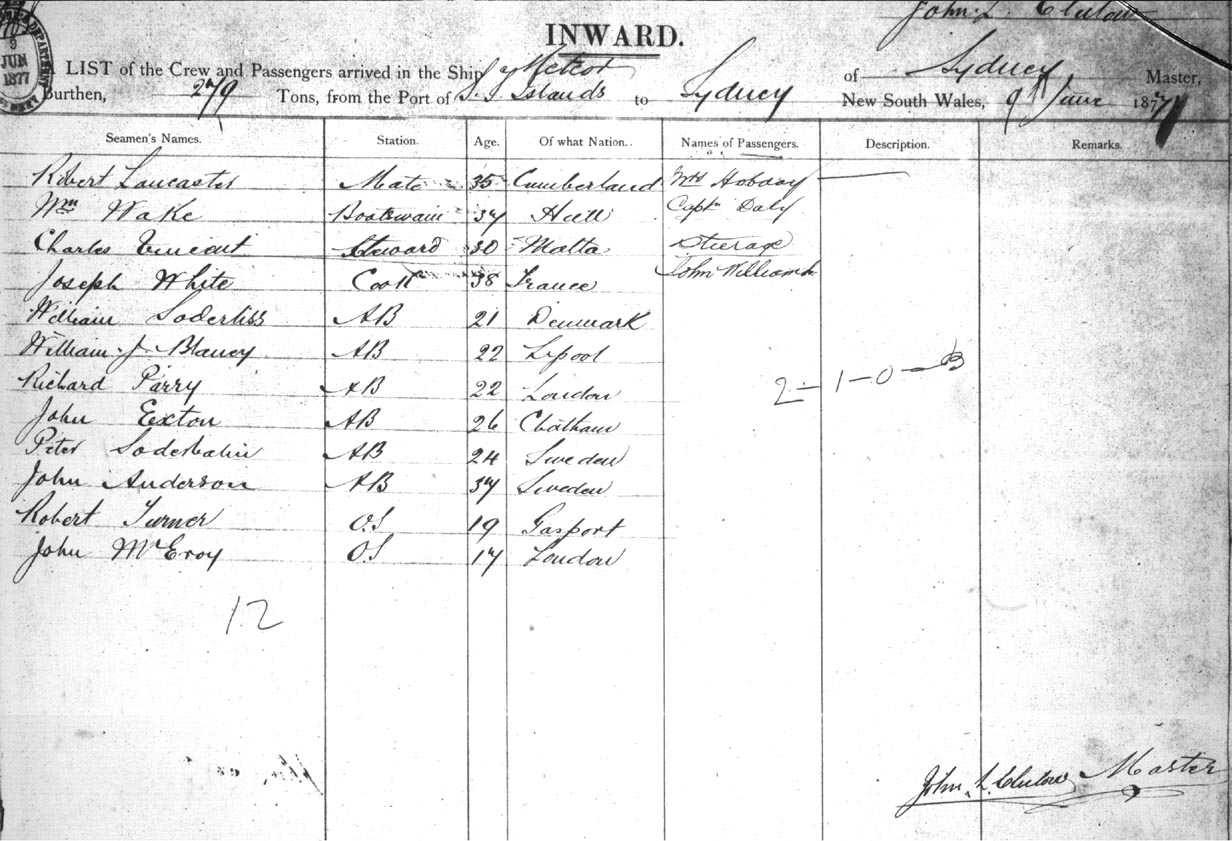 John. L. Clulow
INWARD.
9
JUN
1877
LIST of the Crew and Passengers arrived in the Ship Meteor of Sydney Master,
Burthen, 279 Tons, from the Port of S. S. Islands to Sydney New South Wales, 9th June 1877
Seamen's Names. Station. Age. Of what Nation.. Names of Passengers. Description. Remarks.
Robert Lancaster Mate 35 Cumberland Mrs
Wm Wake Boatswain 37 Hull Capt Daly
Charles Vincent Steward 30 Malta Steerage
Joseph White Cook 38 France John Williams
William AB 21 Denmark
William J Blaney AB 22 Lpool
Richard Parry AB 22 London 2-1-0-3
John Exton AB 26 Chatham
Peter AB 24 Sweden
John Anderson AB 37 Sweden
Robert Turner O.S 19 Gosport
John McEroy O.S 17 London
12
John. L. Clulow Master